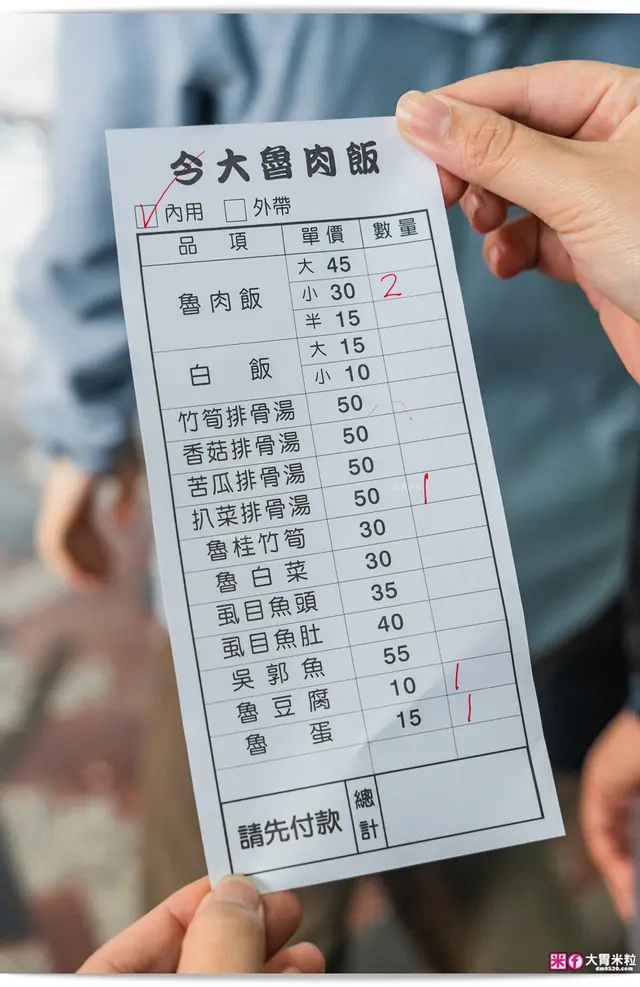 今大魯肉飯
內用 外帶
品項 單價 數量
魯肉飯 大 45
小 30 2
半 15
白飯 大 15
小 10
竹筍排骨湯 50
香菇排骨湯 50
苦瓜排骨湯 50
扒菜排骨湯 50 1
魯桂竹筍 30
魯白菜 30
虱目魚頭 35
虱目魚肚 40
吳郭魚 55
魯豆腐 10 1
魯蛋 15 1
請先付款 總計
大胃米粒
dm0520.com